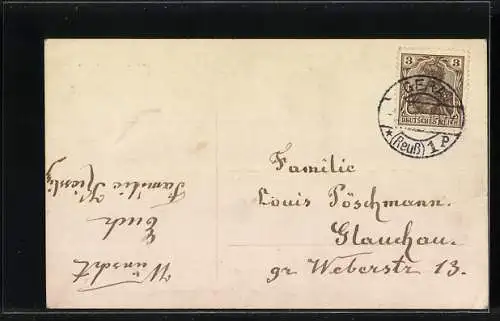 3 3
DEUTSCHES REICH
GERA
* (Reuß) 1 P
Familie
Louis Pöschmann.
Glauchau.
gr Weberstr 13.
Wünscht
Euch
Familie